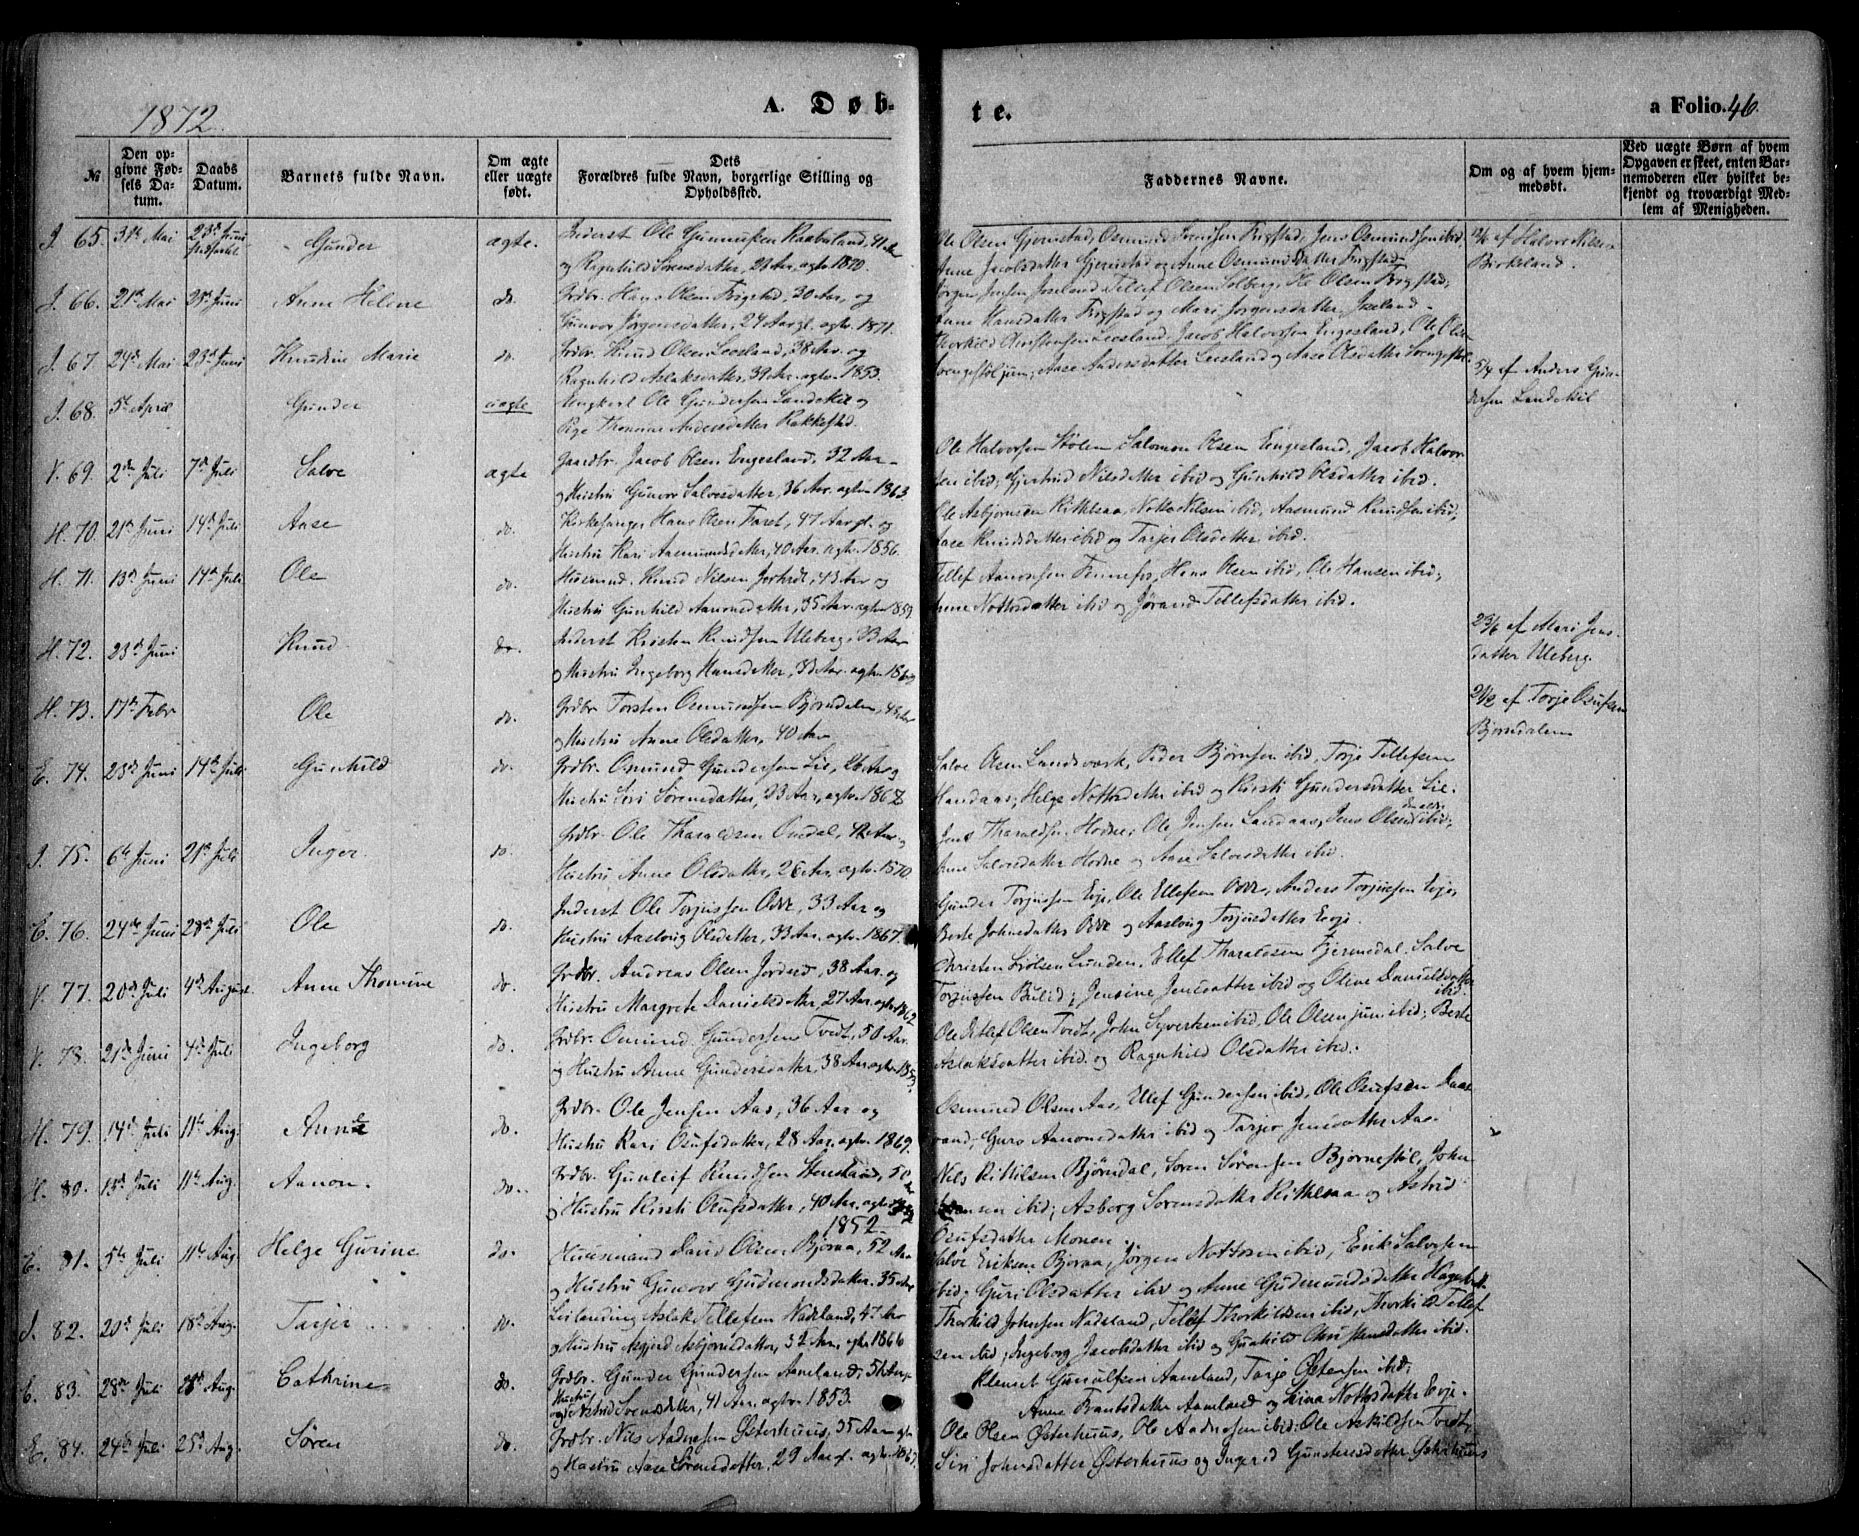 1872.
A. Døb-
te.
a Folio. 46.
№
Den op-
givne Fød-
sels Da-
tum.
Daabs
Datum.
Barnets fulde Navn.
Om ægte
eller uægte
født.
Dets
Forældres fulde Navn, borgerlige Stilling og
Opholdssted.
Faddernes Navne.
Om og af hvem hjem-
medøbt.
Ved uægte Børn af hvem
Opgaven er skeet, enten Bar-
nemoderen eller hvilket be-
kjendt og troværdigt Med-
lem af Menigheden.
I. 65. 31te Mai 23de Juni Gunder ægte. Inderst Ole Gunnufsen Raabuland, 41 Aar
og Ragnhild Sørensdatter, 21 Aar, egtv. 1870.
Ole Olsen Gjerustad, Osmund Svendsen Frigstad, Jens Osmundsen ibid
Anne Jacobsdatter Gjerustad og Anne Osmundsdatter Frigstad
12/6 af Halvor Nilsen
Birkeland.
I. 66. 21de Mai 23de Juni Anne Helene do. Grdbr. Hans Olsen Frigstad, 30 Aar, og
Gunvor Jørgensdatter, 24 Aar gl. egtv. 1871.
Jørgen Jensen Iveland, Tellef Olsen Solberg, Ole Olsen Frigstad,
Anne Hansdatter Frigstad og Mari Jørgensdatter Iveland
I. 67 24de Mai 23de Juni Knudine Marie do. Grdbr. Knud Olsen Leesland, 38 Aar og
Ragnhild Aslaksdatter, 39 Aar. egtv. 1853.
Thorkild Christensen Leesland, Jacob Halvorsen Engesland, Ole Olsen
Svengestøl jun; Aase Andersdatter Leesland og Aase Olsdatter Svengestøl
I. 68. 5te April Gunder uægte Ungkarl Ole Gundersen Landskil og
Pige Thomine Andersdatter Rakkestad.
5/4 af Anders Gun-
dersen Landskil
V. 69. 2den Juli 7de Juli Salve ægte Gaardbr. Jacob Olsen Engesland, 32 Aar
og Hustru Gunvor Salvesdatter, 36 Aar. egtv. 1863.
Ole Halvorsen Stølen, Salomon Olsen Engesland, Jacob Halvor-
sen ibid; Gjertrud Nilsdatter ibid og Gunhild Olsdatter ibid.
H. 70. 21de Juni 14de Juli Aase do. Kirkesanger Hans Olsen Faret, 47 Aar gl. og
Hustru Kari Aasmundsdatter, 40 Aar. egtv. 1856.
Ole Asbjørnsen Kittelsaa, Notto Nilsen ibid, Aasmund Knudsen ibid,
Aase Knudsdatter ibid og Tarjer Olsdatter ibid.
H. 71. 13de Juni 14de Juli Ole do. Husmnd. Knud Nilsen 43 Aar og
Hustru Gunhild Aanonsdatter, 35 Aar. egtv. 1859.
Tellef Aanonsen Fennefos, Hans Olsen ibid, Ole Hansen ibid;
Anne Nottosdatter ibid og Jørand Tellefsdatter ibid.
H. 72. 23de Juni Knud do. Inderst Kristen Knudsen Uleberg, 33 Aar
og Hustru Ingeborg Hansdatter, 33 Aar. egtv.
23/6 af Mari Jens-
datter Uleberg.
H. 73. 17de Febr Ole do. Grdbr. Torsten Osmundsen Bjorndalen, 48 Aar
og Hustru Anne Olsdatter, 40 Aar
21/2 af Torje Osufsen
Bjorndalen
E. 74. 23de Juni 14de Juli Gunhild do. Grdbr. Osmund Gundersen Lie, 26 Aar og
Hustru Siri Sørensdatter, 23 Aar, egtv. 1868
Salve Olsen Landsværk, Peder Bjørnsen ibid, Torje Tellefsen
Haadaas; Helge Nottosdatter ibid og Kirsti Gundersdatter Lie.
I. 75. 6te Juni 21de Juli Inger do. Grdbr. Ole Tharaldsen Omdal, 42 Aar og
Hustru Anne Olsdatter, 26 Aar, egtv. 1870.
Jens Tharaldsen Hodne; Ole Jensen Landaas, Jens Olsen ibid;
Anne Salvesdatter Hodne og Aase Salvesdatter ibid.
E. 76. 24de Juni 28de Juli Ole do. Inderst Ole Torjussen Odde, 33 Aar og
Hustru Aaslaug Olsdatter, 33 Aar. egtv. 1867.
Gunder Torjussen Evje, Ole Ellefsen Odde, Anders Torjussen Evje,
Berte Johnsdatter Odde og Aaslaug Torjusdatter Evje.
V. 77. 20de Juli 4de August. Anne Thomine do. Grdbr. Andreas Olsen Jorderd, 38 Aar. og
Hustru Margrete Danielsdatter, 27 Aar. egtv. 1862
Christen Lunden, Ellef Tharaldsen Fjermedal, Salve
Torjussen Bulid; Jensine Jensdatter ibid og Oline Danielsdatter
ibid.
V. 78. 21de Juni 4de Juli Ingeborg do. Grdbr. Osmund Gundersen Tvedt, 50 Aar
og Hustru Anne Gundersdatter, 38 Aar egtv. 1853.
Ole Detlef Olsen Tvedt, John Syvertsen ibid, Ole Olsen jun ibid; Berte
Aslaksdatter ibid. og Ragnhild Olsdatter ibid.
H. 79. 14de Juli 11te Aug. Anne do. Grdbr. Ole Jensen Aas, 36 Aar og
Hustru Kari Osufsdatter, 28 Aar. egtv. 1869.
Osmund Olsen Aas, Ellef Gundersen ibid, Ole Osufsen Daas-
vand; Guro Aanonsdatter ibid og Tarjer Jensdatter Aas.
H. 80. 13de Juli 11te Aug. Aanon do. Grdbr. Gunleif Knudsen Skueland, 50 Aar
og Hustru Kirsti Osufsdatter, 40 Aar. egtv.
1852
Nils Kittilsen Bjørndal, Søren Sørensen Bjørnestøl, John
Hansen ibid; Asborg Sørensdatter Kittelsaa og Astrid
Osufsdatter Monen.
E. 81. 5te Juli 11te Aug. Helge Gurine do. Huusmand David Olsen Bjoraa, 52 Aar
og Hustru Gunvor Gudmundsdatter. 35 Aar
Salve Eriksen Bjoraa, Jørgen Nottosen ibid, Erik Salvesen
ibid; Guri Olsdatter ibid og Anne Gudmundsdatter
I. 82. 20de Juli 18de Aug. Tarjer do. Leilending Aslak Tellefsen Nadeland, 47 Aar
og Hustru Asgjerd Asbjørnsdatter, 32 Aar, egtv. 1866
Thorkild Johnsen Nadeland, Tellef Thorkildsen ibid, Thorkild Tellef-
sen ibid; Ingeborg Jacobsdatter ibid og Gunhild Christensdatter ibid.
E. 83. 28de Juli Aug. Cathrine do. Grdbr. Gunder Gundersen Aaneland, 51 Aar
og Hustru Astrid Svensdatter, 41 Aar. egtv. 1853.
Klemet Gunulfsen Aaneland, Tarje Østensen ibid;
Anne Brautsdatter Aaneland og Stina Nottosdatter Evje.
E. 84. 24de Juli 25de Aug. Søren do. Grdbr. Nils Aadnesen Østerhuus, 35 Aar
og Hustru Aase Sørensdatter, 29 Aar gl. egtv. 1867.
Ole Olsen Østerhuus, Ole Aadnesen ibid. Ole Askildsen Tvedt,
Siri Johnsdatter Østerhuus og Ingerid Gundersdatter Østerhuus